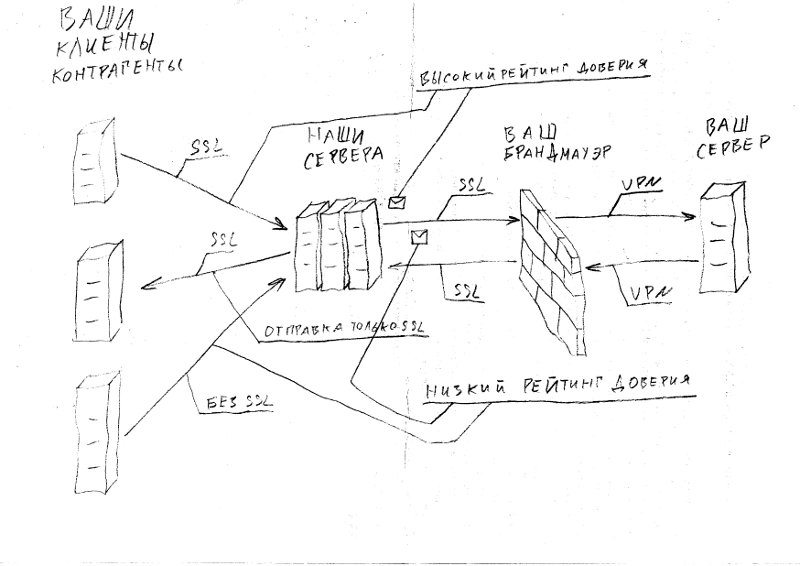 ВАШИ
КЛИЕНТЫ
КОНТРАГЕНТЫ
ВЫСОКИЙ РЕЙТИНГ ДОВЕРИЯ
НАШИ
СЕРВЕРА
ВАШ
БРАНДМАУЭР
ВАШ
СЕРВЕР
SSL
SSL
VPN
SSL
SSL
VPN
ОТПРАВКА ТОЛЬКО SSL
НИЗКИЙ РЕЙТИНГ ДОВЕРИЯ
БЕЗ SSL